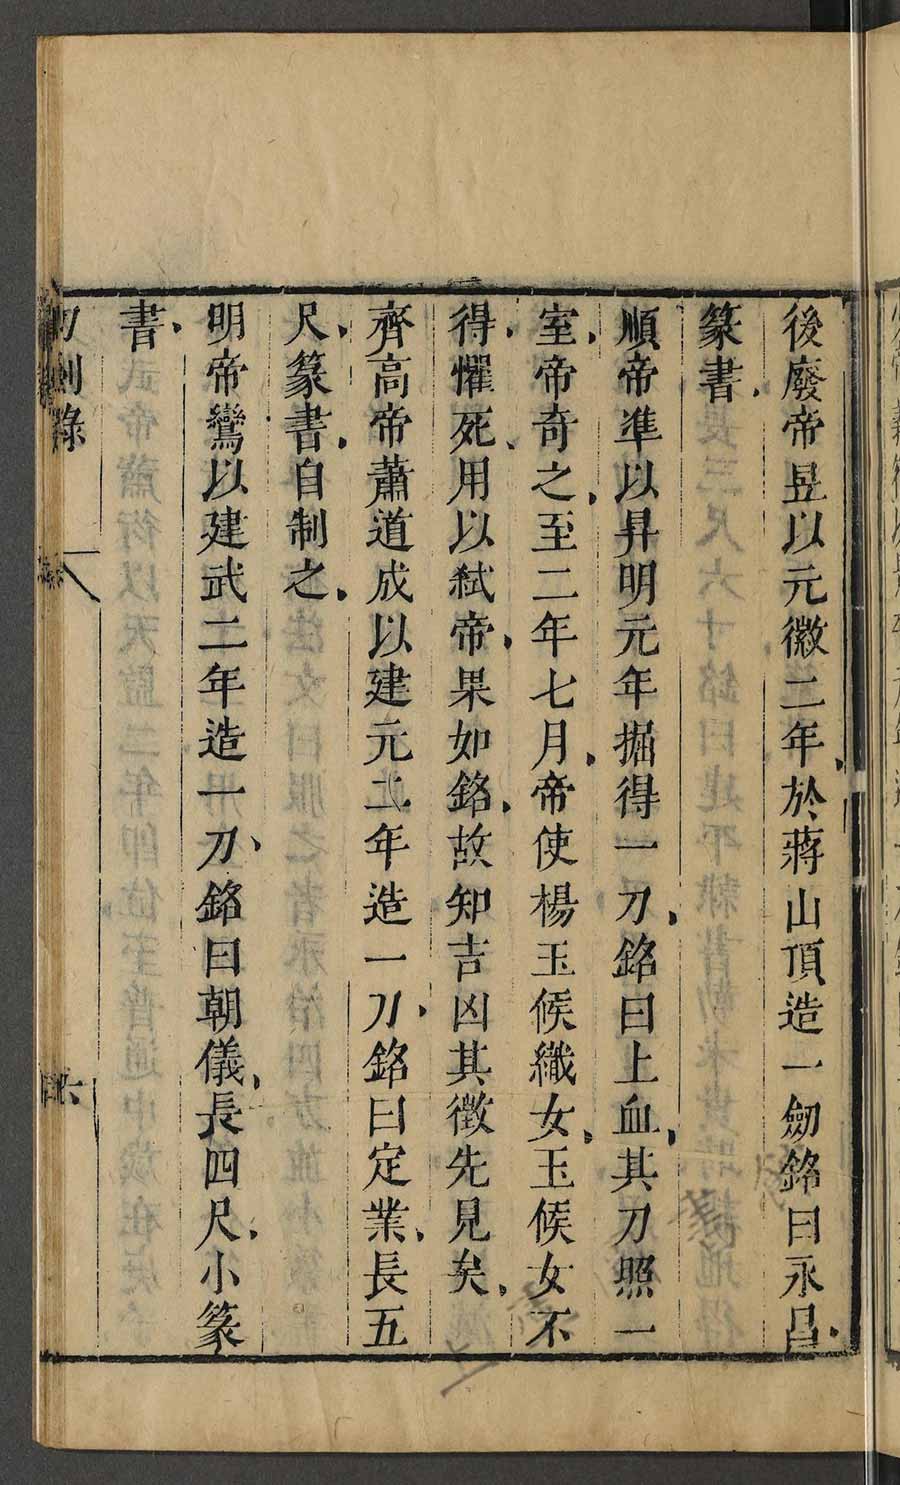 後廢帝昱以元徽二年於蔣山頂造一劒銘曰永昌
篆書
順帝準以昇明元年掘得一刀銘曰上血其刀照一
室帝奇之至二年七月帝使楊玉候織女玉候女不
得懼死用以弑帝果如銘故知吉凶其徴先見矣
齊高帝蕭道成以建元二年造一刀銘曰定業長五
尺篆書自制之
明帝鸞以建武二年造一刀銘曰朝儀長四尺小篆
書
刀劍錄
六